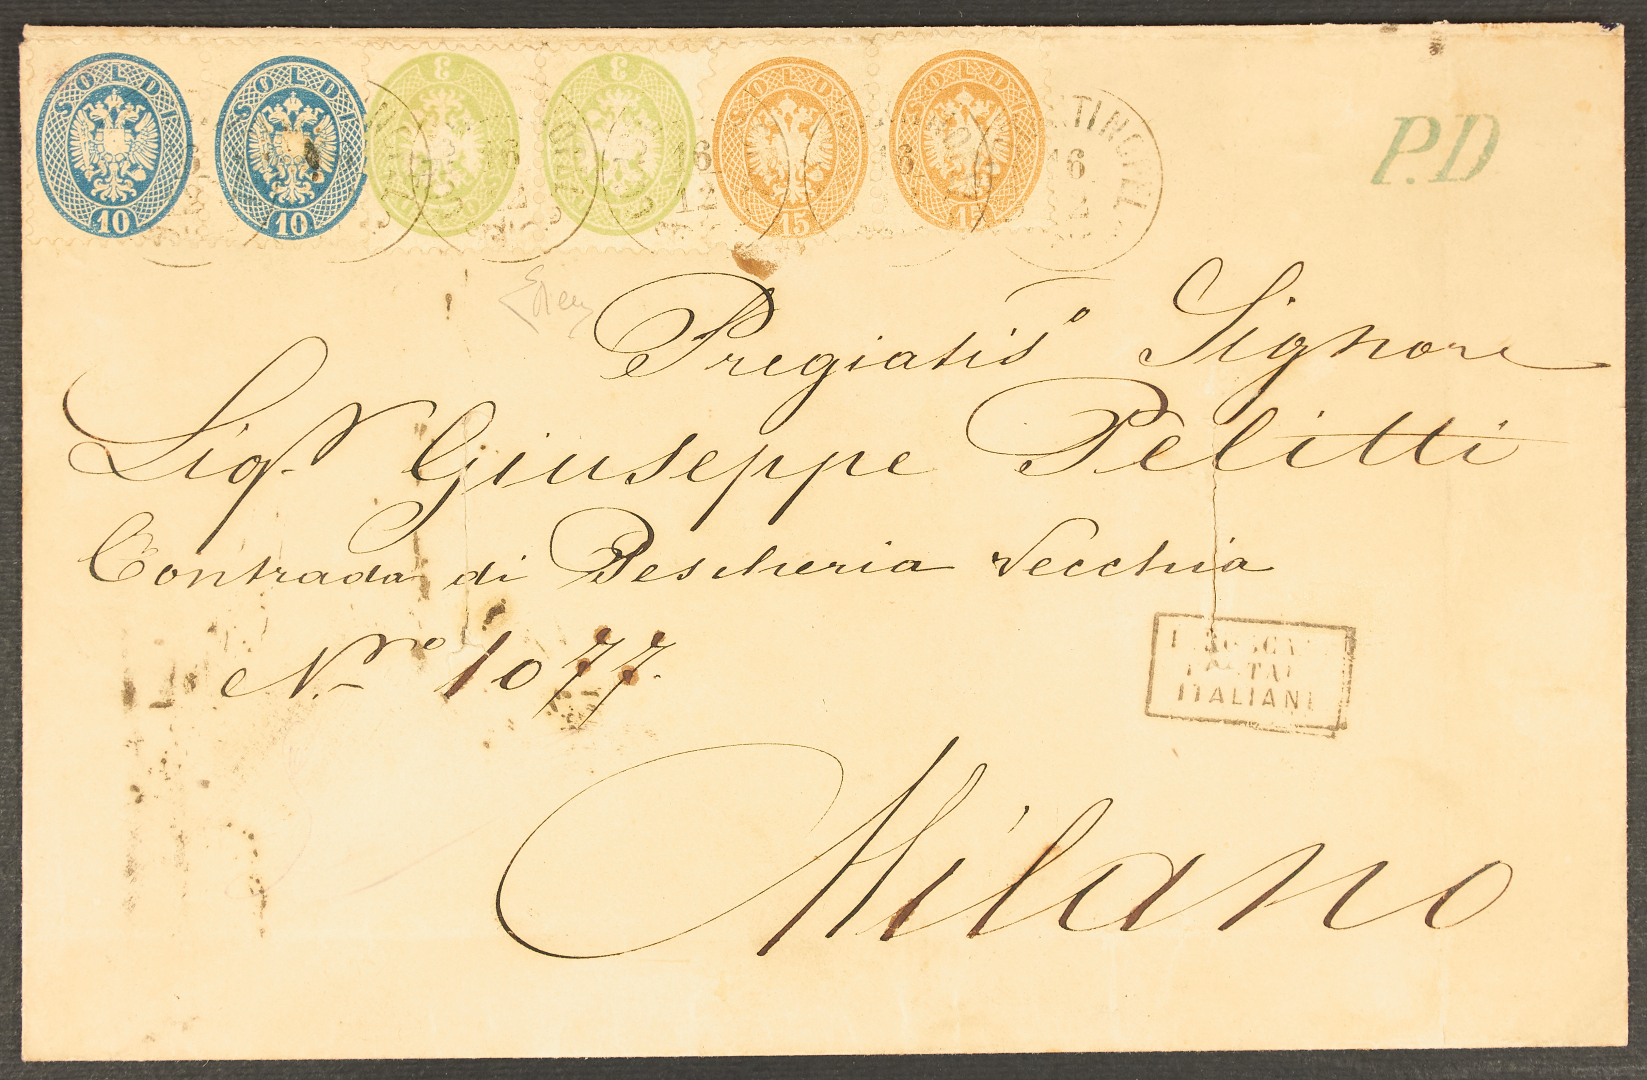 SOLDI 10
SOLDI 10
3
3
SOLDI 15
SOLDI 15
16
12
P.D
Pregiatis.o Signore
Sigr. Giuseppe Pelitti
Contrada di Pescheria Vecchia
N.ro 1077.
Milano
ITALIANI